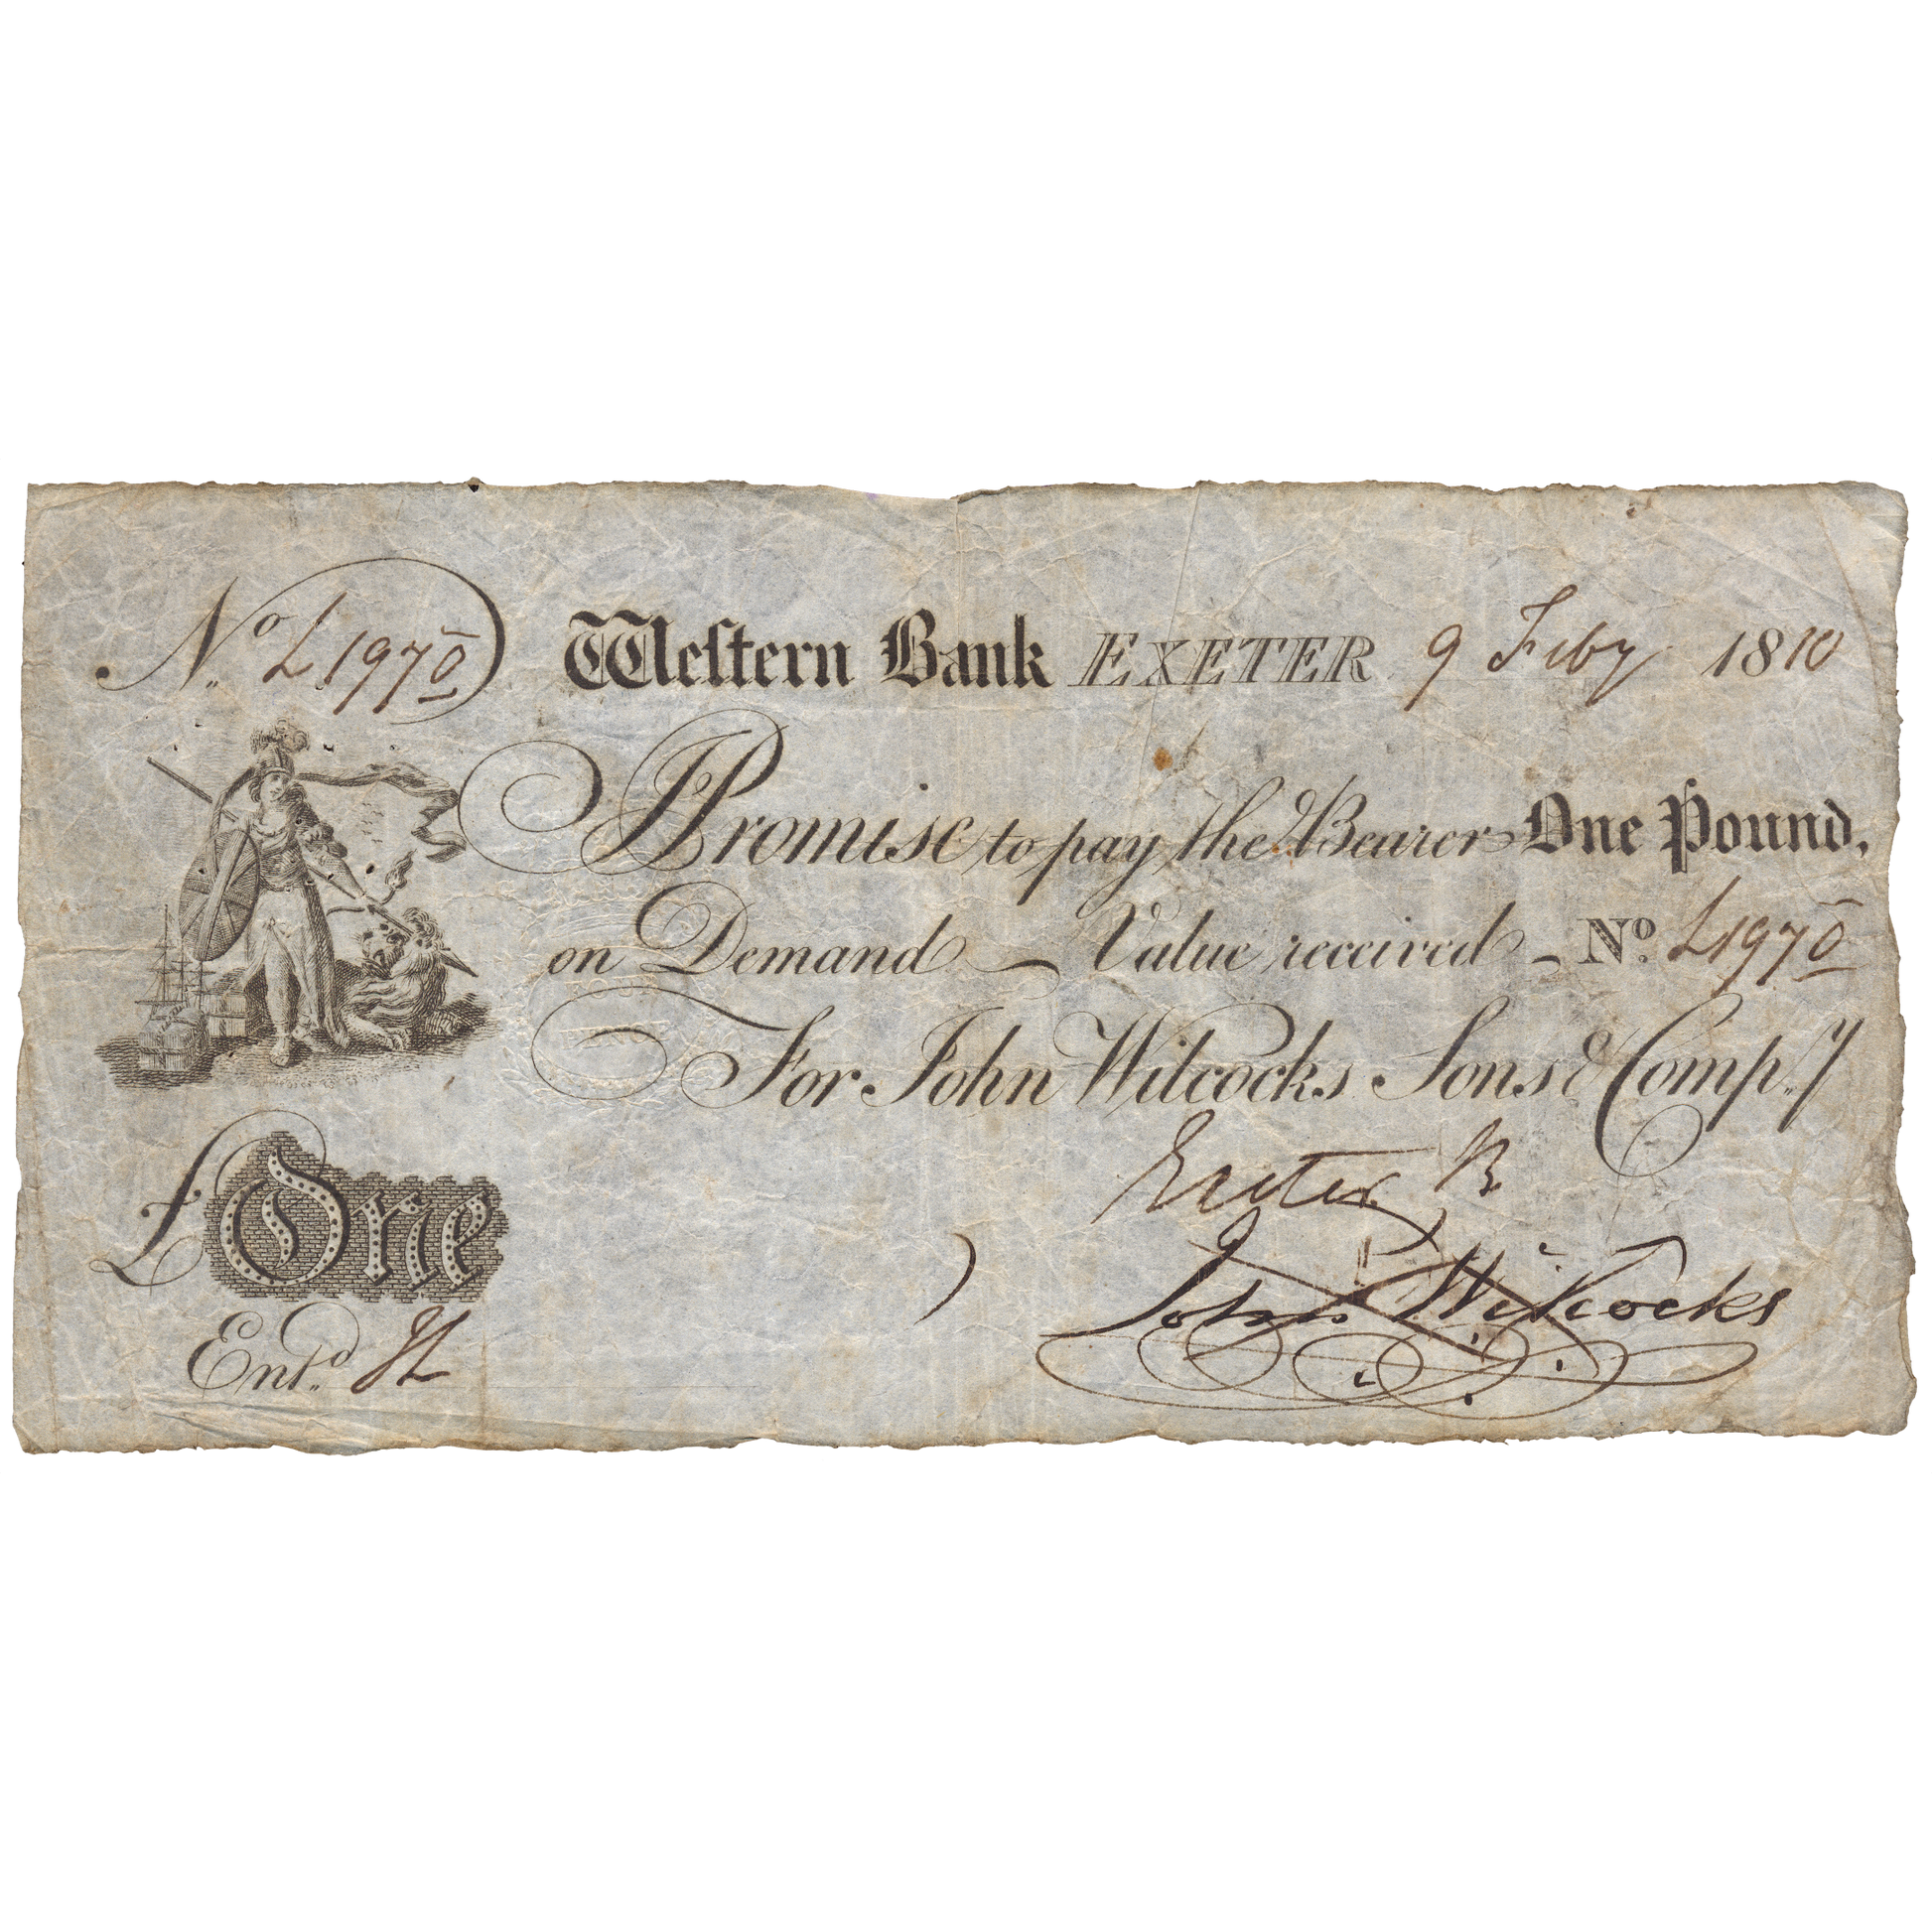 No L1970 Weſtern Bank EXETER 9 Feby 1810
I Promise to pay the Bearer One Pound,
on Demand — Value received — No. L1970
For John Wilcocks Sons & Compy
Exeter B
John Wilcocks
£One
Entd.